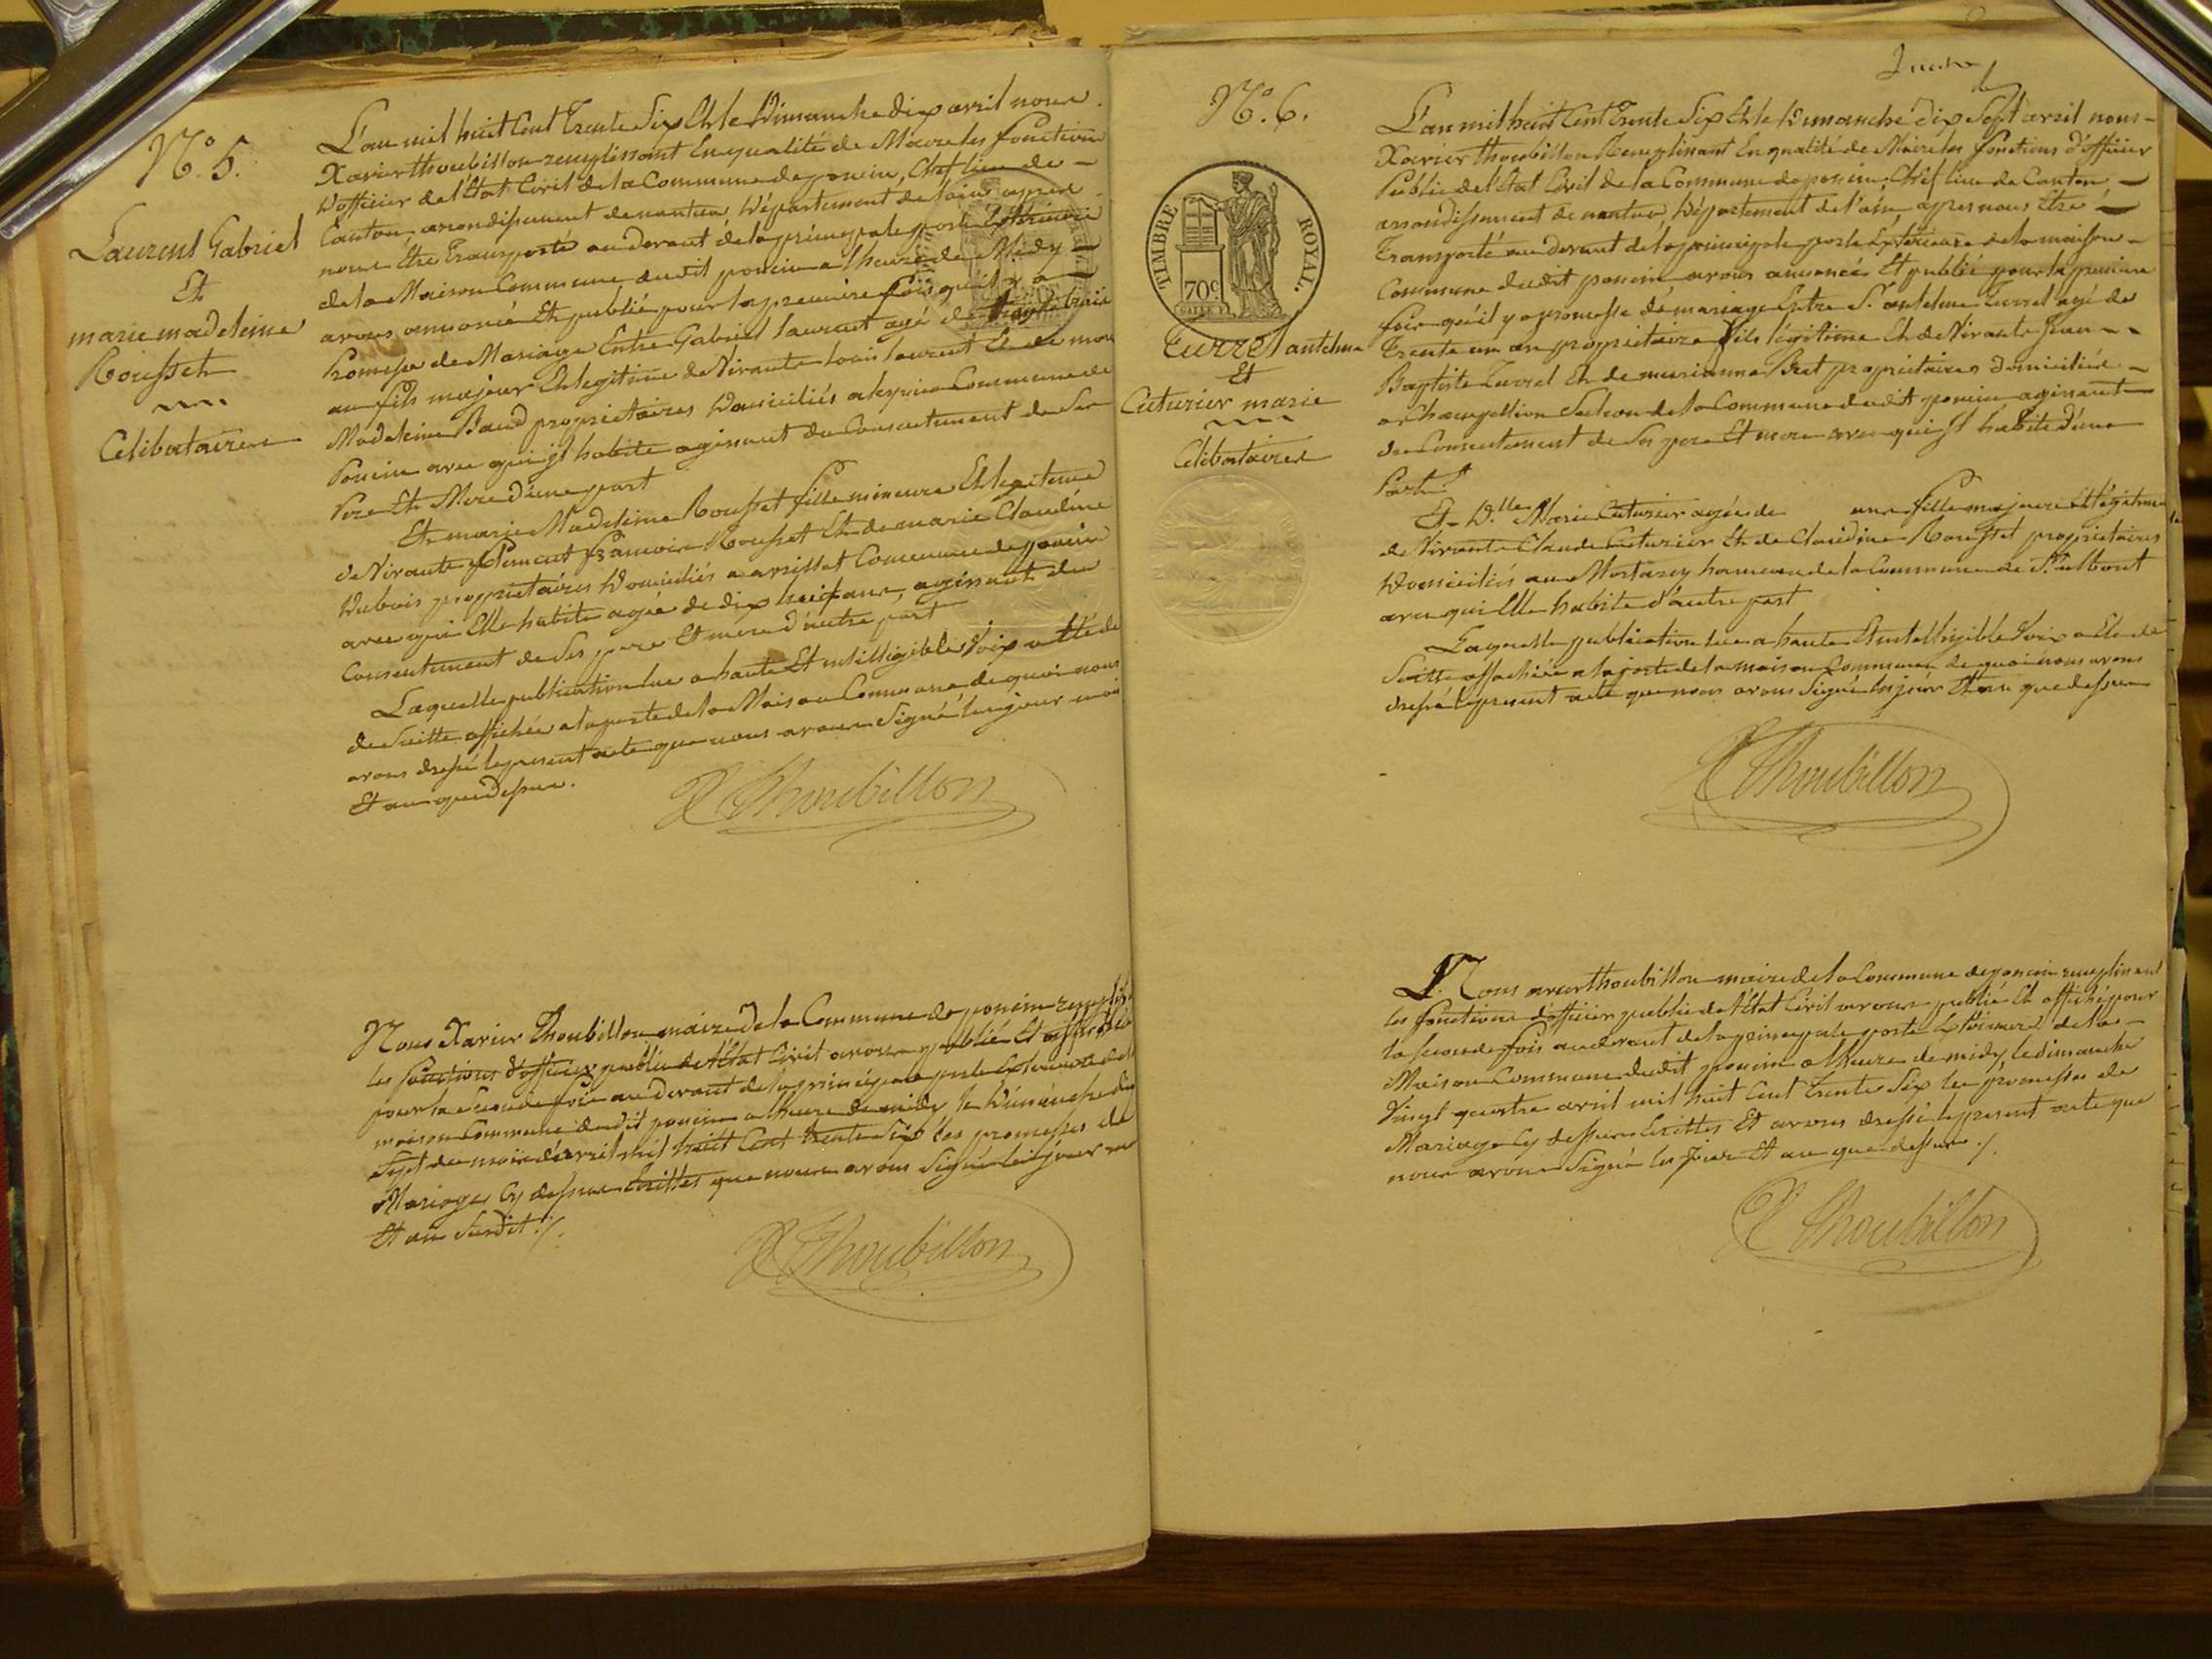 N.o 5.
Laurent Gabriel
Et
marie madeleine
Rousset
Celibataires
L'an mil huit Cent Trente Six Et le Dimanche dix avril nous
Xavier thoubillon remplissant En qualité de Maire les fonctions
D'officier de l'Etat Civil de la Commune de poncin, Chef lieu de
Canton, arondissement de nantua, Département de l'ain apres
nous Etre Transporté au devant de la principale porte Exterieure
de la Maison Commune dudit poncin a l'heure de Midy
avons annoncé Et publié pour la premiere fois qu'il y a
Promesse de Mariage Entre Gabriel laurent agé de trois
an fils majeur Et legitime de Vivants louis laurent Et de
Madeleine Baud proprietaires Domiciliés a Commune de
Poncin avec qui Il habite agissant du Consentement de Ses
Pere Et Mere d'une part
Et marie Madeleine Rousset fille mineure Et legitime
de Vivants Clement françois Rousset Et de marie Claudine
Dubois proprietaires Domiciliés a avrillat Commune de poncin
avec qui Elle habite agée de dix huit ans, agissant du
Consentement de Ses pere Et mere d'autre part
Laquelle publication lue a haute Et intelligible Voix a Eté de
de Suitte affichée a la porte de la Maison Commune de quoi nous
avons dressé le present acte que nous avons Signé les jour mois
Et an que dessus.
X Thoubillon
Nous Xavier Thoubillon maire de la Commune de poncin
les fonctions d'officier public de l'Etat Civil avons publié Et affiché
pour la Seconde fois au devant de la principale porte Exterieure de la
maison Commune dudit poncin a l'heure de midy le Dimanche dix
Sept du mois d'avril mil huit Cent trente Six les promesses de
Mariage Cy dessus Ecrittes que nous avons Signé les jour
Et an Susdit ./.
X Thoubillon
N.o 6.
TIMBRE ROYAL.
70c
Turrel antelme
Et
Cuturier marie
Celibataires
L'an mil huit Cent Trente Six Et le Dimanche dix Sept avril nous
Xavier Thoubillon Remplissant En qualité de Maire les fonctions d'officier
Public de l'Etat Civil de la Commune de poncin Chef lieu de Canton
arrondissement de nantua, Département de l'ain, apres nous Etre
Transporté au devant de la principale porte Exterieure de la maison
Commune dudit poncin, avons annoncé Et publié pour la premiere
fois qu'il y a promesse de mariage Entre Sr. antelme Turrel agé de
Trente un an proprietaire fils légitime Et de Vivants Jean
Baptiste Turrel Et de marianne proprietaires domiciliés
a Champollion Section de la Commune dudit poncin agissant
du Consentement de Ses pere Et mere avec qui Il habite d'une
Part.
Et D.lle Marie Cuturier agée de ans fille majeure Et légitime
de Vivants Claude Cuturier Et de Claudine Rousset proprietaires
Domiciliés au Mortarey hameau de la Commune de St. albant
avec qui Elle habite d'autre part
Laquelle publication lue a haute Et intelligible Voix a Eté de
Suitte affichée a la porte de la maison Commune de quoi nous avons
dressé le present acte que nous avons Signé les jour Et an que dessus
X Thoubillon
Nous Xavier Thoubillon maire de la Commune de poncin remplissant
les fonctions d'officier public de l'Etat Civil avons publié Et affiché pour
la Seconde fois au devant de la principale porte Exterieure de la
Maison Commune dudit poncin a l'heure de midy, le dimanche
Vingt quatre avril mil huit Cent Trente Six les promesses de
Mariage Cy dessus Ecrittes Et avons dressé le present acte que
nous avons Signé les Jour Et an que dessus ./.
X Thoubillon